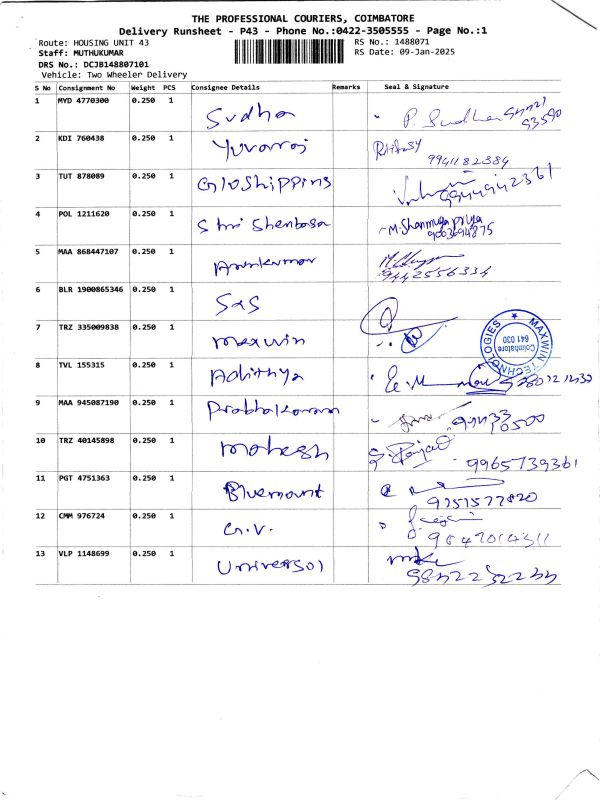 THE PROFESSIONAL COURIERS, COIMBATORE
Delivery Runsheet - P43 - Phone No.:0422-3505555 - Page No.:1
Route: HOUSING UNIT 43
RS No.: 1488071
Staff: MUTHUKUMAR
RS Date: 09-Jan-2025
DRS No.: DCJB148807101
Vehicle: Two Wheeler Delivery
S No Consignment No Weight PCS Consignee Details Remarks Seal & Signature
1 MYD 4770300 0.250 1 Sudha P. Sudha
2 KDI 760438 0.250 1 Yuvaraj 9941182384
3 TUT 878089 0.250 1 GloShippins 9944942361
4 POL 1211620 0.250 1 Shri Shenbaga M. Shanmuga priya
9003694875
5 MAA 868447107 0.250 1 Arunkumar
9442556334
6 BLR 1900865346 0.250 1 S&S
7 TRZ 335009838 0.250 1 maxwin
MAXWIN TECHNOLOGIES
Coimbatore
641 030
8 TVL 155315 0.250 1 Adithya
9 MAA 945087190 0.250 1 Prabhakaran
10 TRZ 40145898 0.250 1 mahesh
9965739361
11 PGT 4751363 0.250 1 Bluemount
9751577820
12 CMM 976724 0.250 1 G.V.
9847014311
13 VLP 1148699 0.250 1 Universal